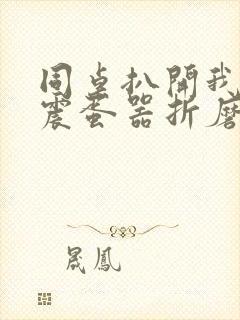 同桌扒開我
震蛋器折磨
晟鳳